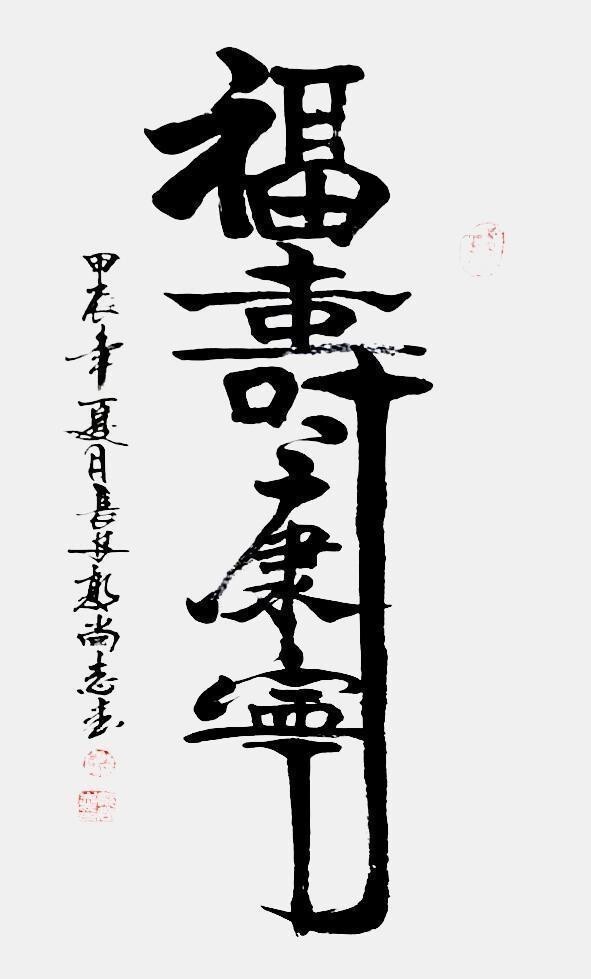 福壽康寧
甲辰年夏月長尚志書